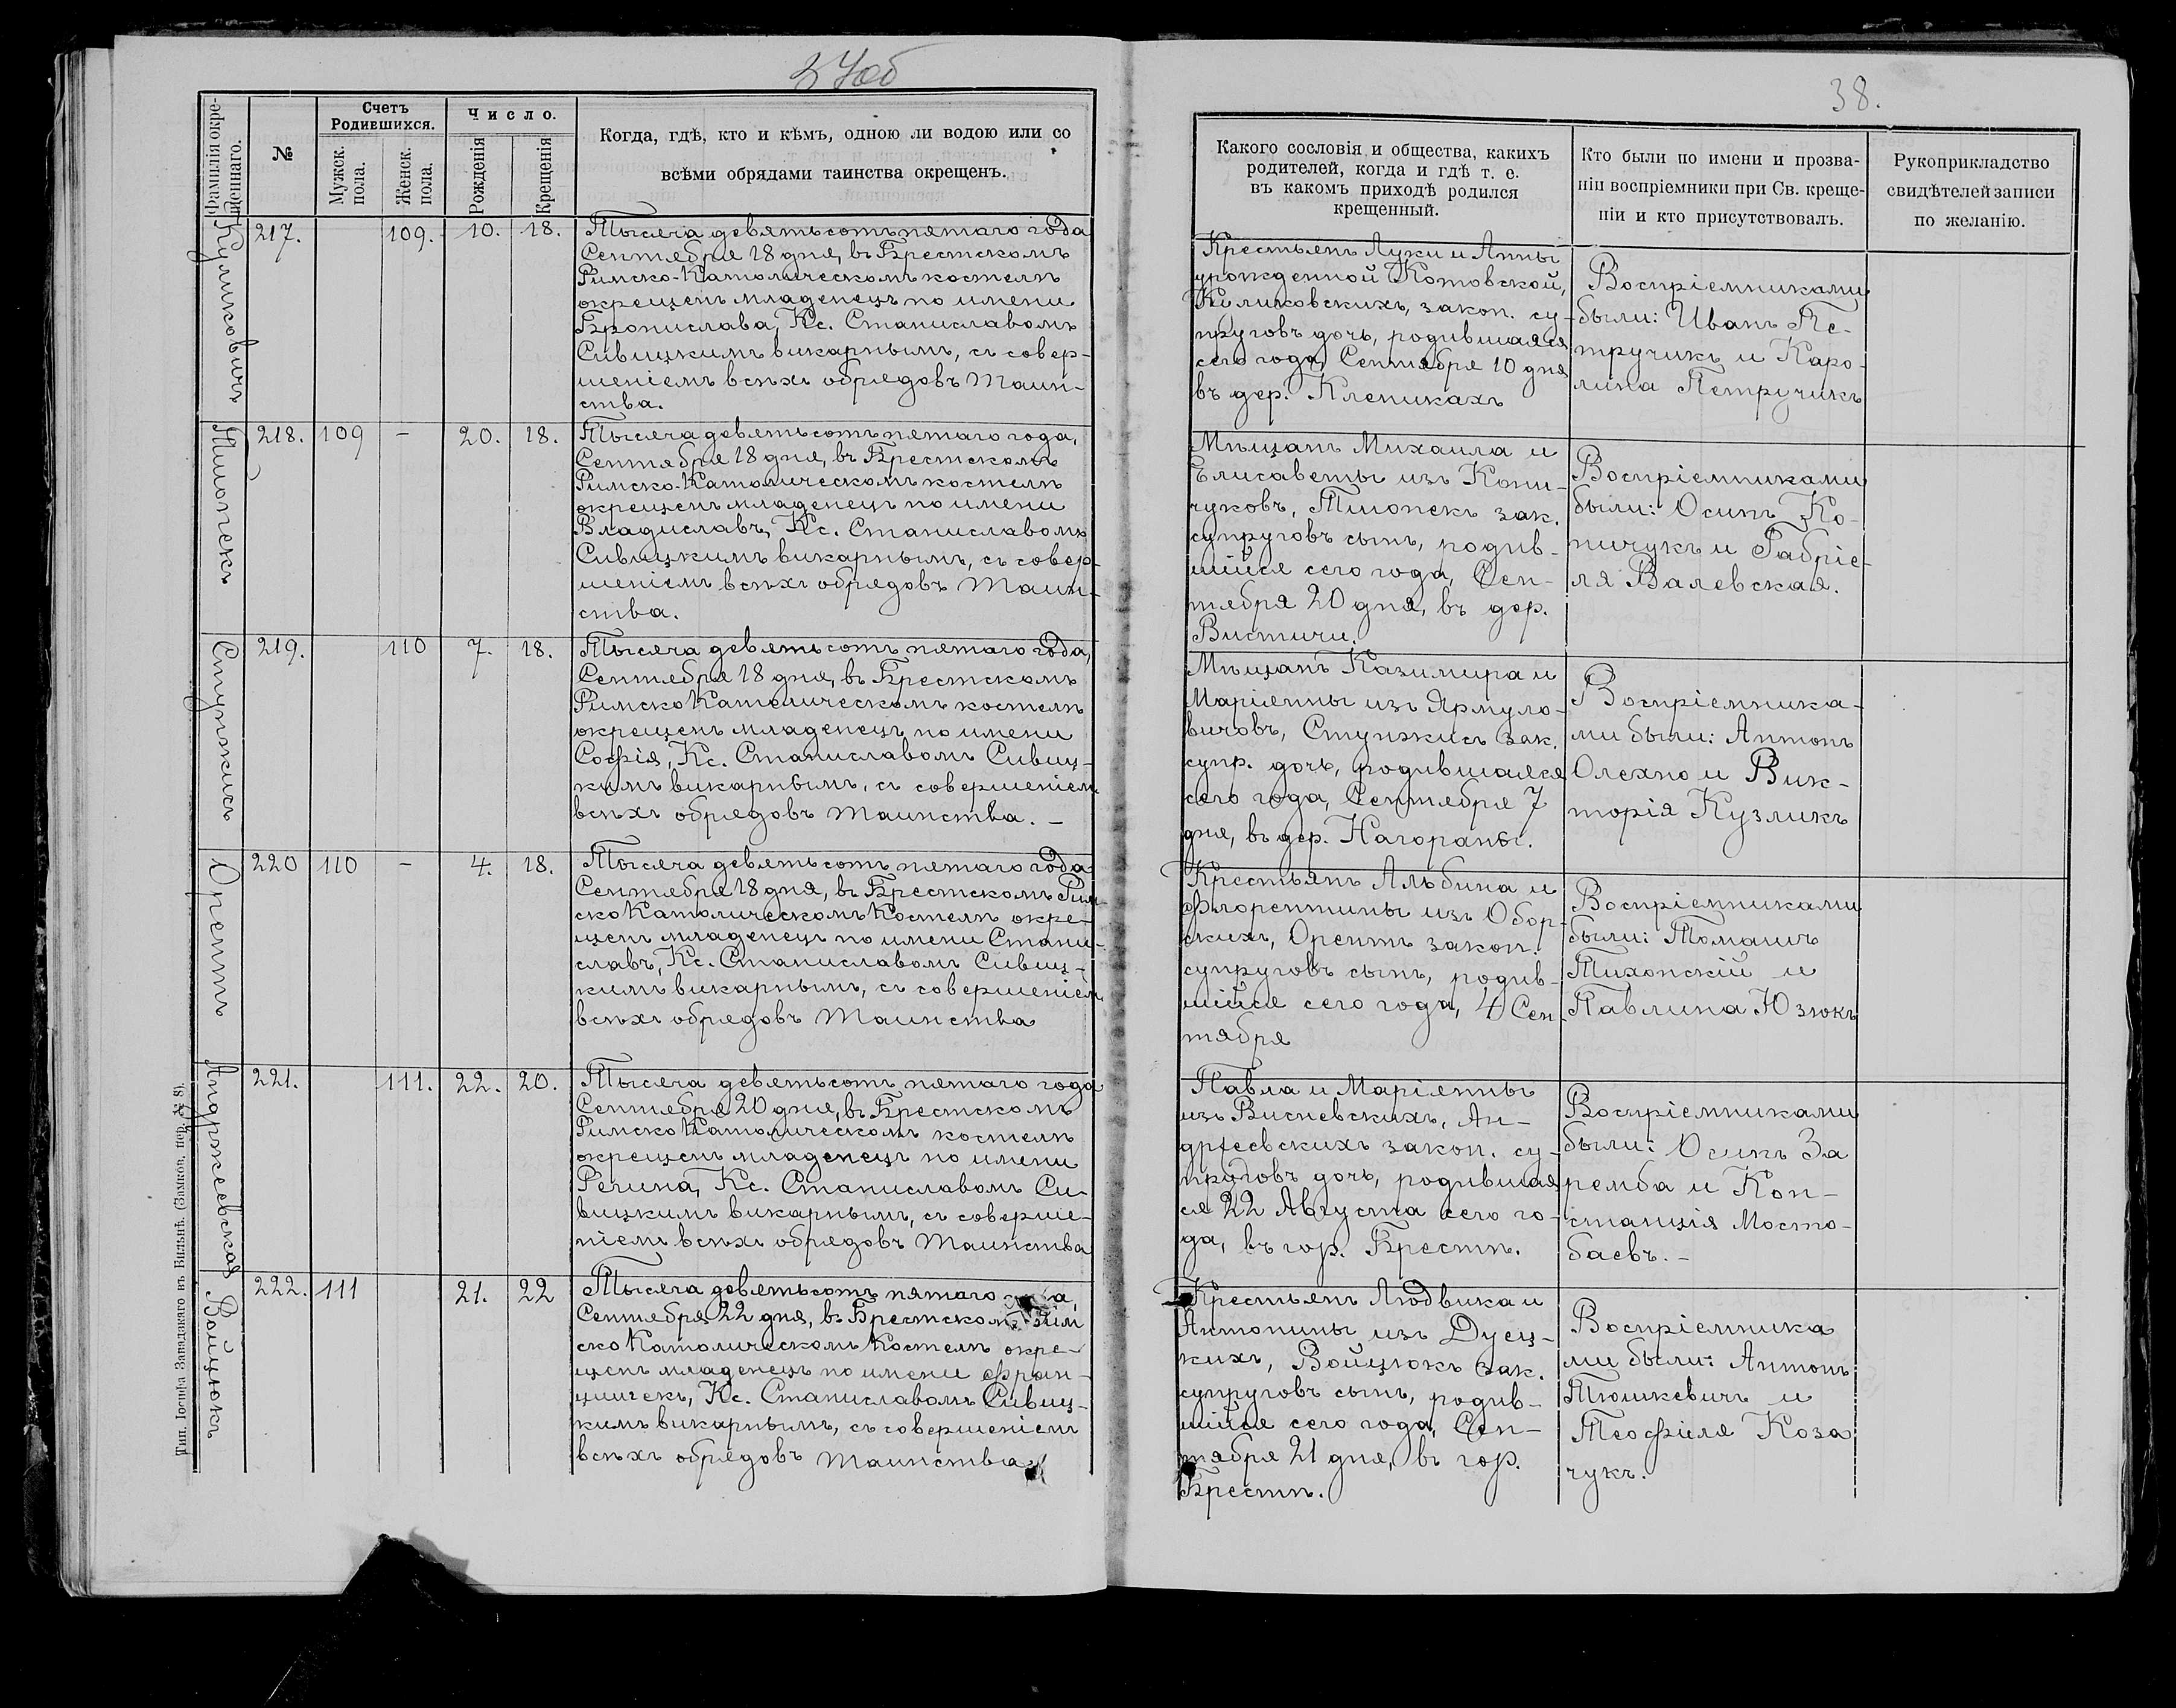 37об
Фамилія окре-
щеннаго.
№
Счетъ
Родившихся.
Мужск.
пола.
Женск.
пола.
Число.
Рожденія
Крещенія
Когда, гдѣ, кто и кѣмъ, одною ли водою или со
всѣми обрядами таинства окрещенъ.
Куликовичъ
217.
109.
10.
18.
Тысяча девятьсотъ пятаго года
Сентября 18 дня, въ Брестскомъ
Римско-Католическомъ костелѣ
окрещенъ младенецъ по имени
Бронислава, Кс. Станиславомъ
Сивицкимъ викарнымъ, съ совер-
шеніемъ всѣхъ обрядовъ Таин-
ства.
218.
109
-
20.
18.
Тысяча девятьсотъ пятаго года,
Сентября 18 дня, въ Брестскомъ
Римско-Католическомъ костелѣ
окрещенъ младенецъ по имени
Владиславъ, Кс. Станиславомъ
Сивицкимъ викарнымъ, съ совер-
шеніемъ всѣхъ обрядовъ Таин-
ства.
Ступжисъ
219.
110
7.
18.
Тысяча девятьсотъ пятаго года,
Сентября 18 дня, въ Брестскомъ
Римско Католическомъ костелѣ
окрещенъ младенецъ по имени
Софія, Кс. Станиславомъ Сивиц-
кимъ викарнымъ, съ совершеніемъ
всѣхъ обрядовъ Таинства. -
Орентъ
220
110
-
4.
18.
Тысяча девятьсотъ пятаго года
Сентября 18 дня, въ Брестскомъ Рим
ско Католическомъ Костелѣ окре-
щенъ младенецъ по имени Стани-
славъ, Кс. Станиславомъ Сивиц-
кимъ викарнымъ, съ совершеніемъ
всѣхъ обрядовъ Таинства
Андржеевская
221.
111.
22.
20.
Тысяча девятьсотъ пятаго года
Сентября 20 дня, въ Брестскомъ
Римско Католическомъ костелѣ
окрещенъ младенецъ по имени
Регина, Кс. Станиславомъ Си-
вицкимъ викарнымъ, съ соверше-
ніемъ всѣхъ обрядовъ Таинства
Войцюкъ
222.
111
21.
22
Тысяча девятьсотъ пятаго
Сентября 22 дня, въ Брестскомъ Рим
ско Католическомъ Костелѣ окре-
щенъ младенецъ по имени Фран-
цишекъ, Кс. Станиславомъ Сивиц-
кимъ викарнымъ, съ совершеніемъ
всѣхъ обрядовъ Таинства
Тип. Іосифа Завадзкаго въ Вильнѣ. (Замков. пер. № 8).
38.
Какого сословія и общества, какихъ
родителей, когда и гдѣ т. е.
въ какомъ приходѣ родился
крещенный.
Кто были по имени и прозва-
ніи воспріемники при Св. креще-
ніи и кто присутствовалъ.
Рукоприкладство
свидѣтелей записи
по желанію.
Крестьянъ Луки и Анны
урожденной Котовской,
Куликовскихъ, закон. су-
пруговъ дочь, родившаяся
сего года, Сентября 10 дня
въ дер. Клепикахъ
Воспріемниками
были: Иванъ Пе-
тручикъ и Каро-
лина Петручикъ
Мѣщанъ Михаила и
Елисаветы изъ Копи-
чуковъ, зак.
супруговъ сынъ, родив-
шійся сего года, Сен-
тября 20 дня, въ дер.
Вистичи.
Воспріемниками
были: Осипъ Ко-
пичукъ и Габріе-
ля Валевская.
Мѣщанъ Казимира и
Маріянны изъ Ярмуло-
вичовъ, Ступжисъ зак.
супр. дочь, родившаяся
сего года, Сентября 7
дня, въ дер. Нагораны.
Воспріемника-
ми были: Антонъ
Олехно и Вик-
торія Кузликъ
Крестьянъ Альбина и
Флорентины изъ Обор-
скихъ, Орентъ закон.
супруговъ сынъ, родив-
шійся сего года, 4 Сен-
тября
Воспріемниками
были: Томашъ
Тихонскій и
Павлина Юзюкъ
Павла и Маріянны
изъ Висневскихъ, Ан-
држеевскихъ закон. су-
пруговъ дочь, родившая
ся 22 Августа сего го-
да, въ гор. Брестѣ.
Воспріемниками
были: Осипъ За
ремба и Кон-
станція Мосто-
баевъ. -
Крестьянъ Людвика и
Антонины изъ Дусц-
кихъ, Войцюкъ зак.
супруговъ сынъ, родив-
шійся сего года, Сен-
тября 21 дня, въ гор.
Брестѣ.
Воспріемника
ми были: Антонъ
Тюшкевичъ и
Теофиля Коза
чукъ.